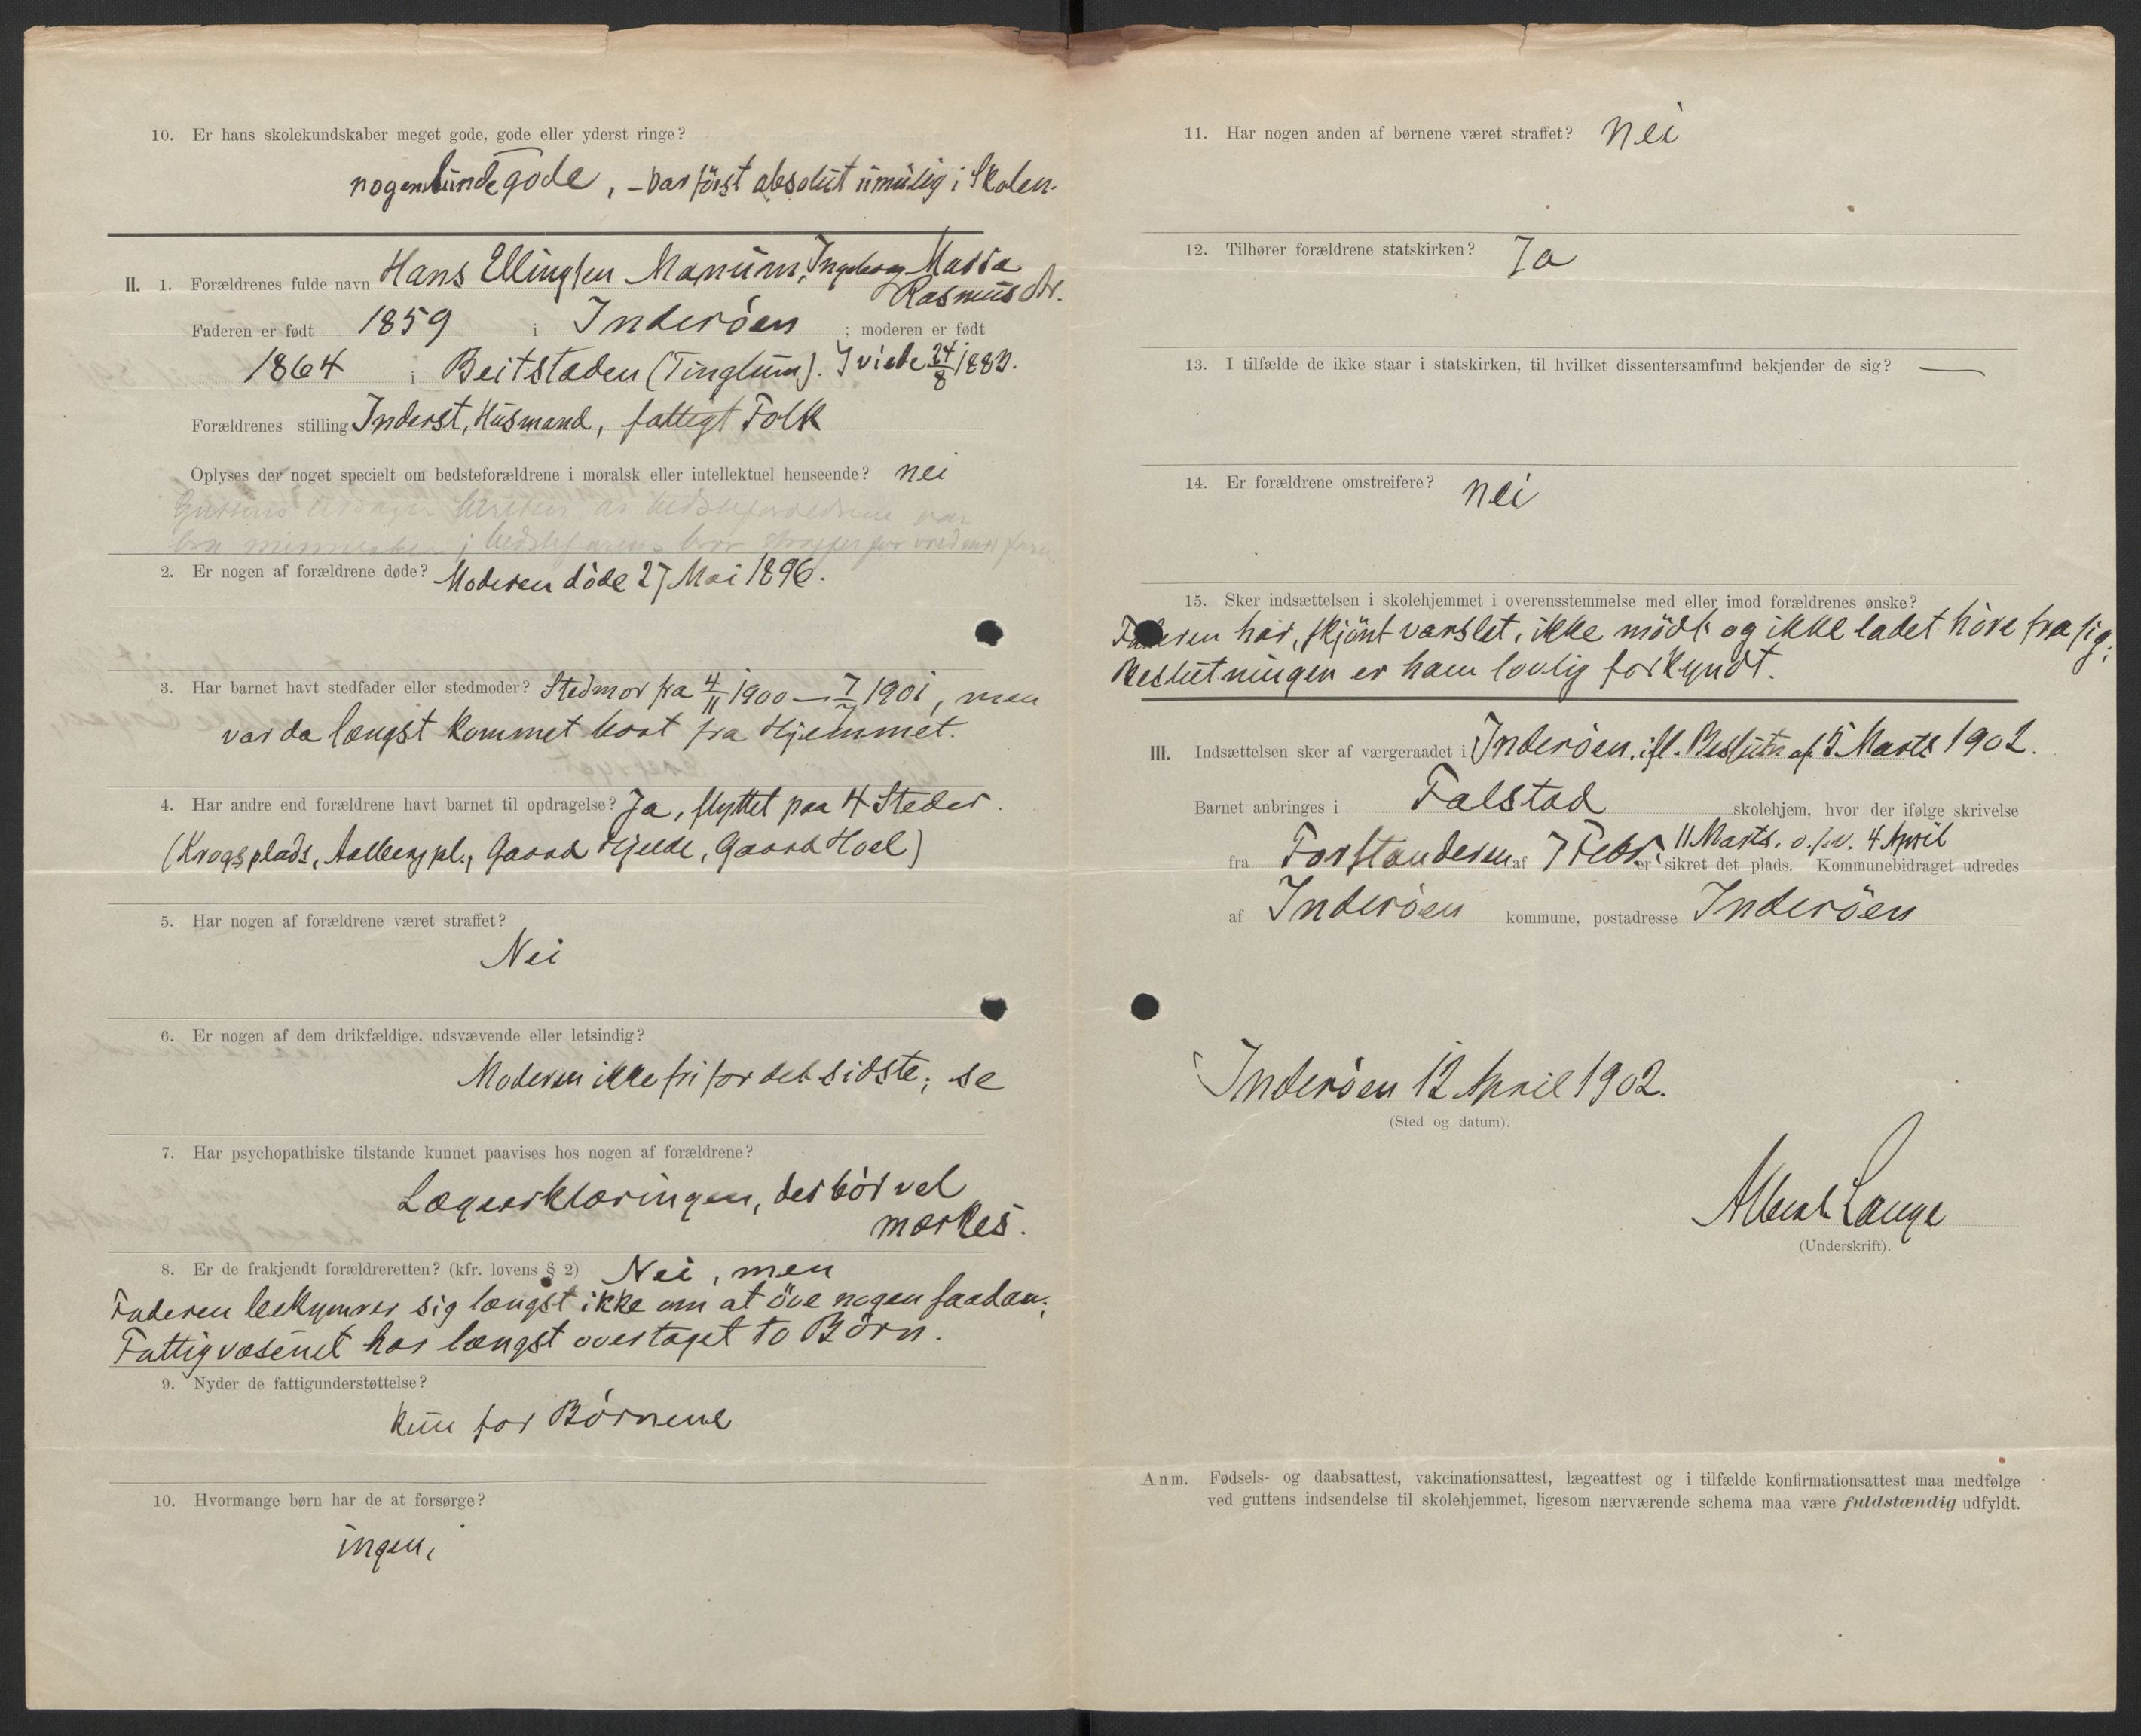 10. Er hans skolekundskaber meget gode, gode eller yderst ringe?
nogenlunde gode, - var först absolut umulig i Skolen.
II. 1. Forældrenes fulde navn Hans Ellingsen Manum, Ingeborg Massa
Rasmusdtr.
Faderen er født 1859 i Inderöen ; moderen er født
1864 i Beitstaden (Tinglum). Iviede 24/8 188
Forældrenes stilling Inderst, Husmand, fattigt Folk
Oplyses der noget specielt om bedsteforældrene i moralsk eller intellektuel henseende? nei
Guttens bedsteforældrene var
bra mennesker; bedstefarens bror
2. Er nogen af forældrene døde? Moderen döde 27 Mai 1896.
3. Har barnet havt stedfader eller stedmoder? Stedmor fra 4/11 1900 - 7/7 1901, men
var da længst kommet bort fra Hjemmet.
4. Har andre end forældrene havt barnet til opdragelse? Ja, flyttet paa 4 Steder.
(Krogsplads, Aalbergpl., Gaard Hjelde, Gaard Hoel)
5. Har nogen af forældrene været straffet?
Nei
6. Er nogen af dem drikfældige, udsvævende eller letsindig?
Moderen ikke fri for det sidste; se
7. Har psychopathiske tilstande kunnet paavises hos nogen af forældrene?
Lægeerklæringen, der bör vel
mærkes.
8. Er de frakjendt forældreretten? (kfr. lovens § 2) Nei, men
Faderen bekymrer sig længst ikke om at öve nogen saadan;
Fattigvæsenet har længst overtaget to Börn.
9. Nyder de fattigunderstøttelse?
kun for Börnene
10. Hvormange børn har de at forsørge?
ingen,
11. Har nogen anden af børnene været straffet? nei
12. Tilhører forældrene statskirken? Ja
13. I tilfælde de ikke staar i statskirken, til hvilket dissentersamfund bekjender de sig? —
14. Er forældrene omstreifere? nei
15. Sker indsættelsen i skolehjemmet i overensstemmelse med eller imod forældrenes ønske?
Faderen har, skjönt varslet, ikke mödt og ikke ladet höre fra sig;
Beslutningen er ham lovlig forkyndt.
III. Indsættelsen sker af værgeraadet i Inderöen, ifl. Beslutn af 5 Marts 1902.
Barnet anbringes i Falstad skolehjem, hvor der ifølge skrivelse
11 Marts. o. s. v. 4 April
fra Forstanderen af 7 Febr. er sikret det plads. Kommunebidraget udredes
af Inderöen kommune, postadresse Inderöen
Inderöen 12 April 1902.
(Sted og datum).
Albert Lange
(Underskrift).
Anm. Fødsels- og daabsattest, vakcinationsattest, lægeattest og i tilfælde konfirmationsattest maa medfølge
ved guttens indsendelse til skolehjemmet, ligesom nærværende schema maa være fuldstændig udfyldt.